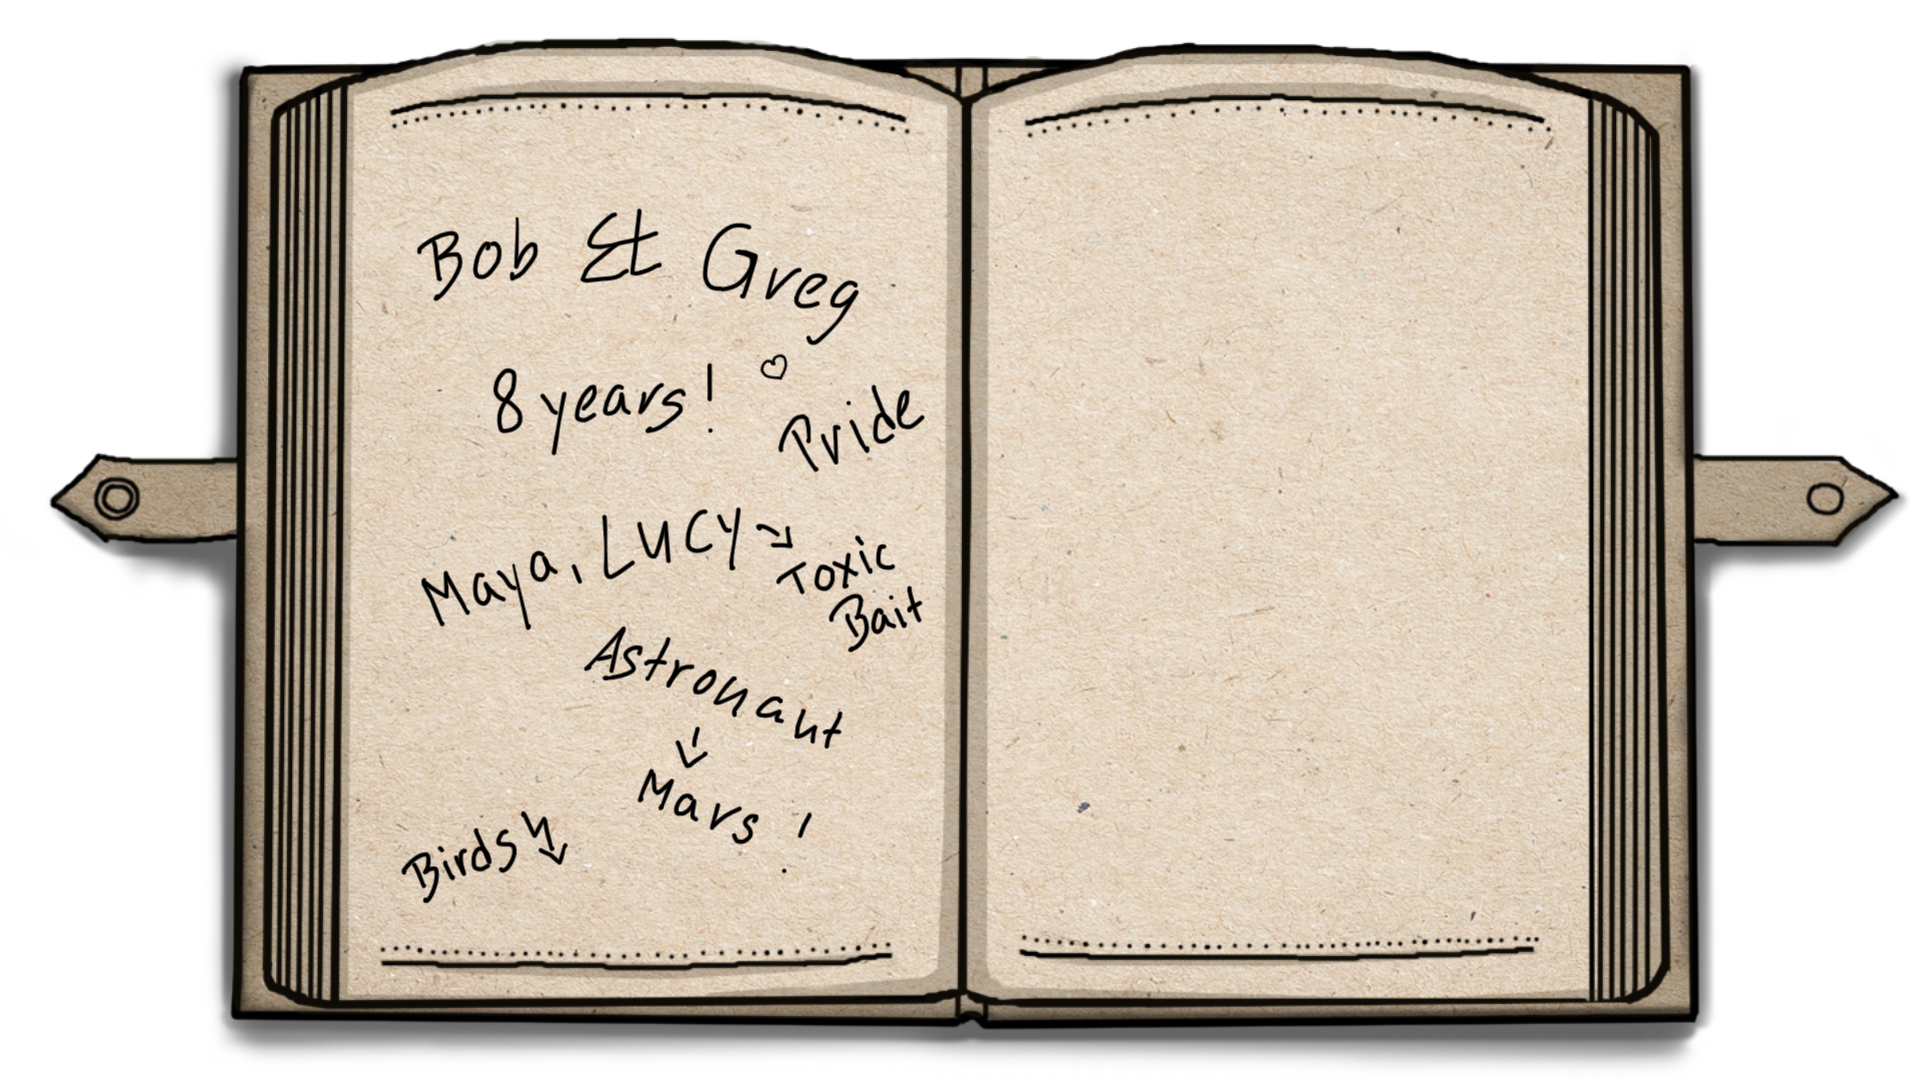 Bob & Greg
8 years! ♡
Pride
Maya, LUCY →
Toxic
Bait
Astronaut
↓
Mars !
Birds ↓